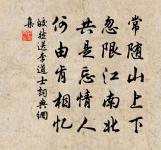 常随山上下
忽限江南北
共是忘情人
何由肯相忆
皎然送李道士詞典網
集